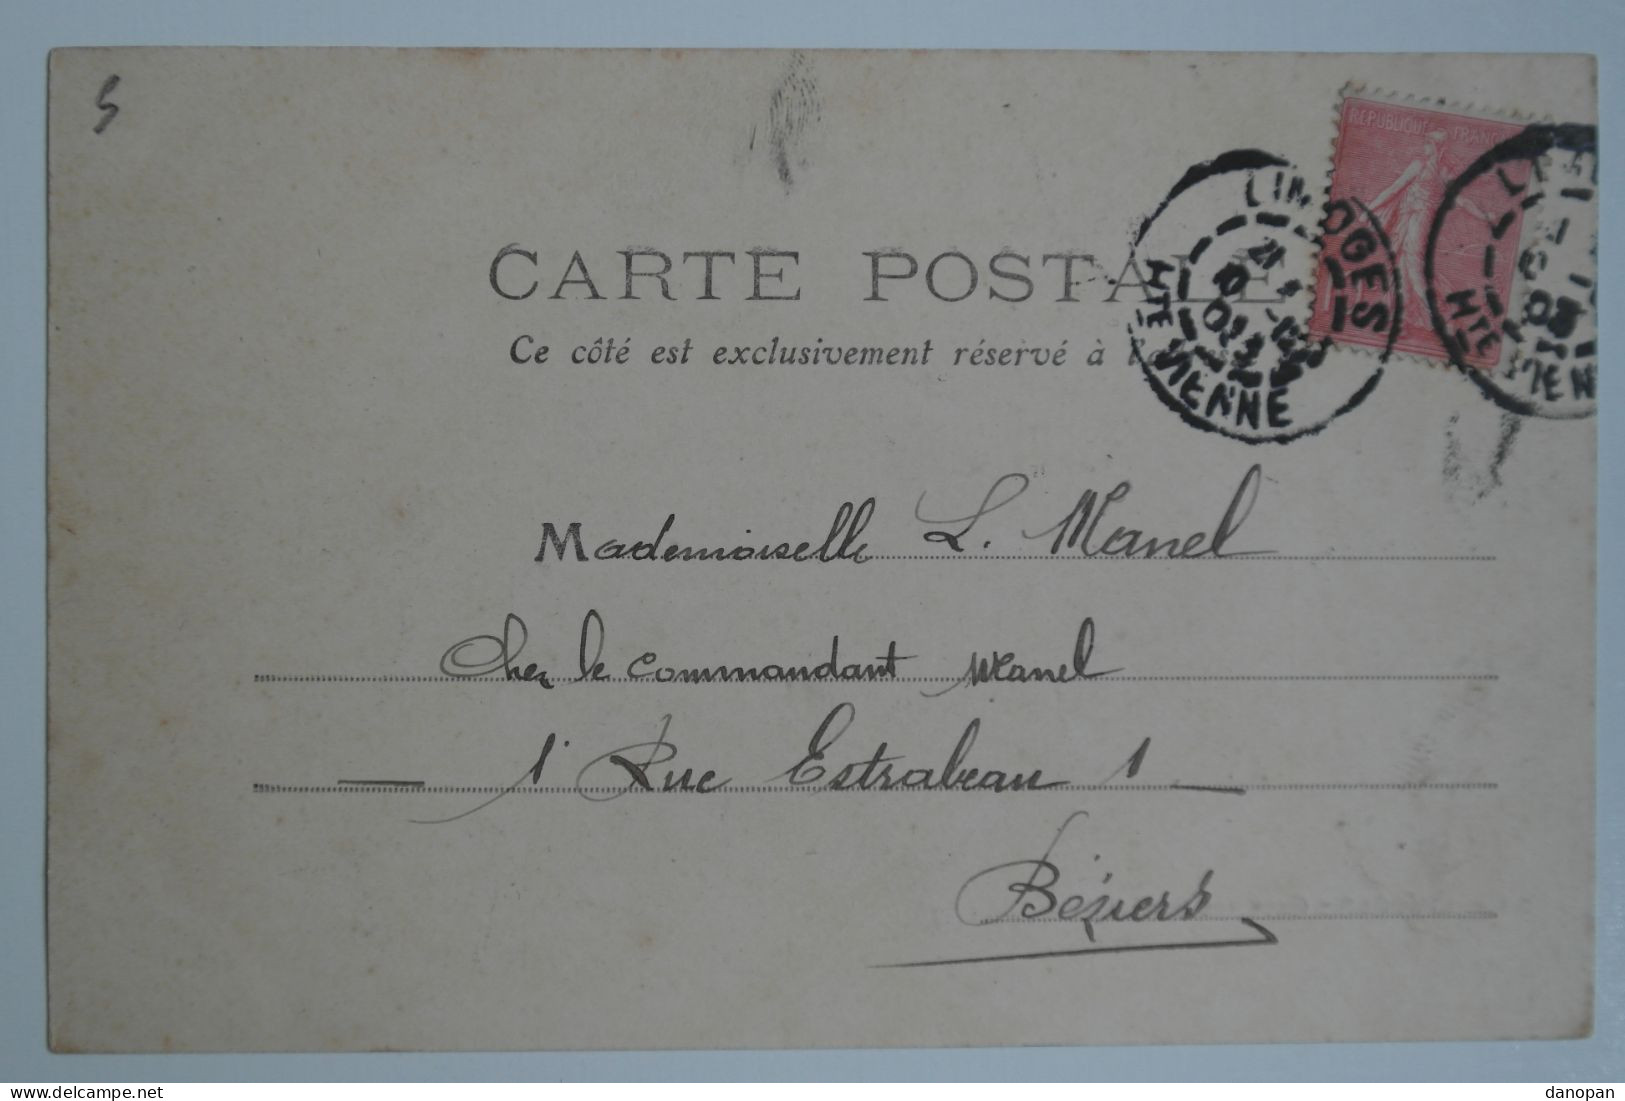 5
RÉPUBLIQUE FRANC
LIMOGES
HTE VIENNE
CARTE POSTALE
Ce côté est exclusivement réservé à l'a
HTE VIENN
Mademoiselle L. Manel
Chez le Commandant Manel
1 Rue Estrabeau 1
Béziers
www.delcampe.net
danopan